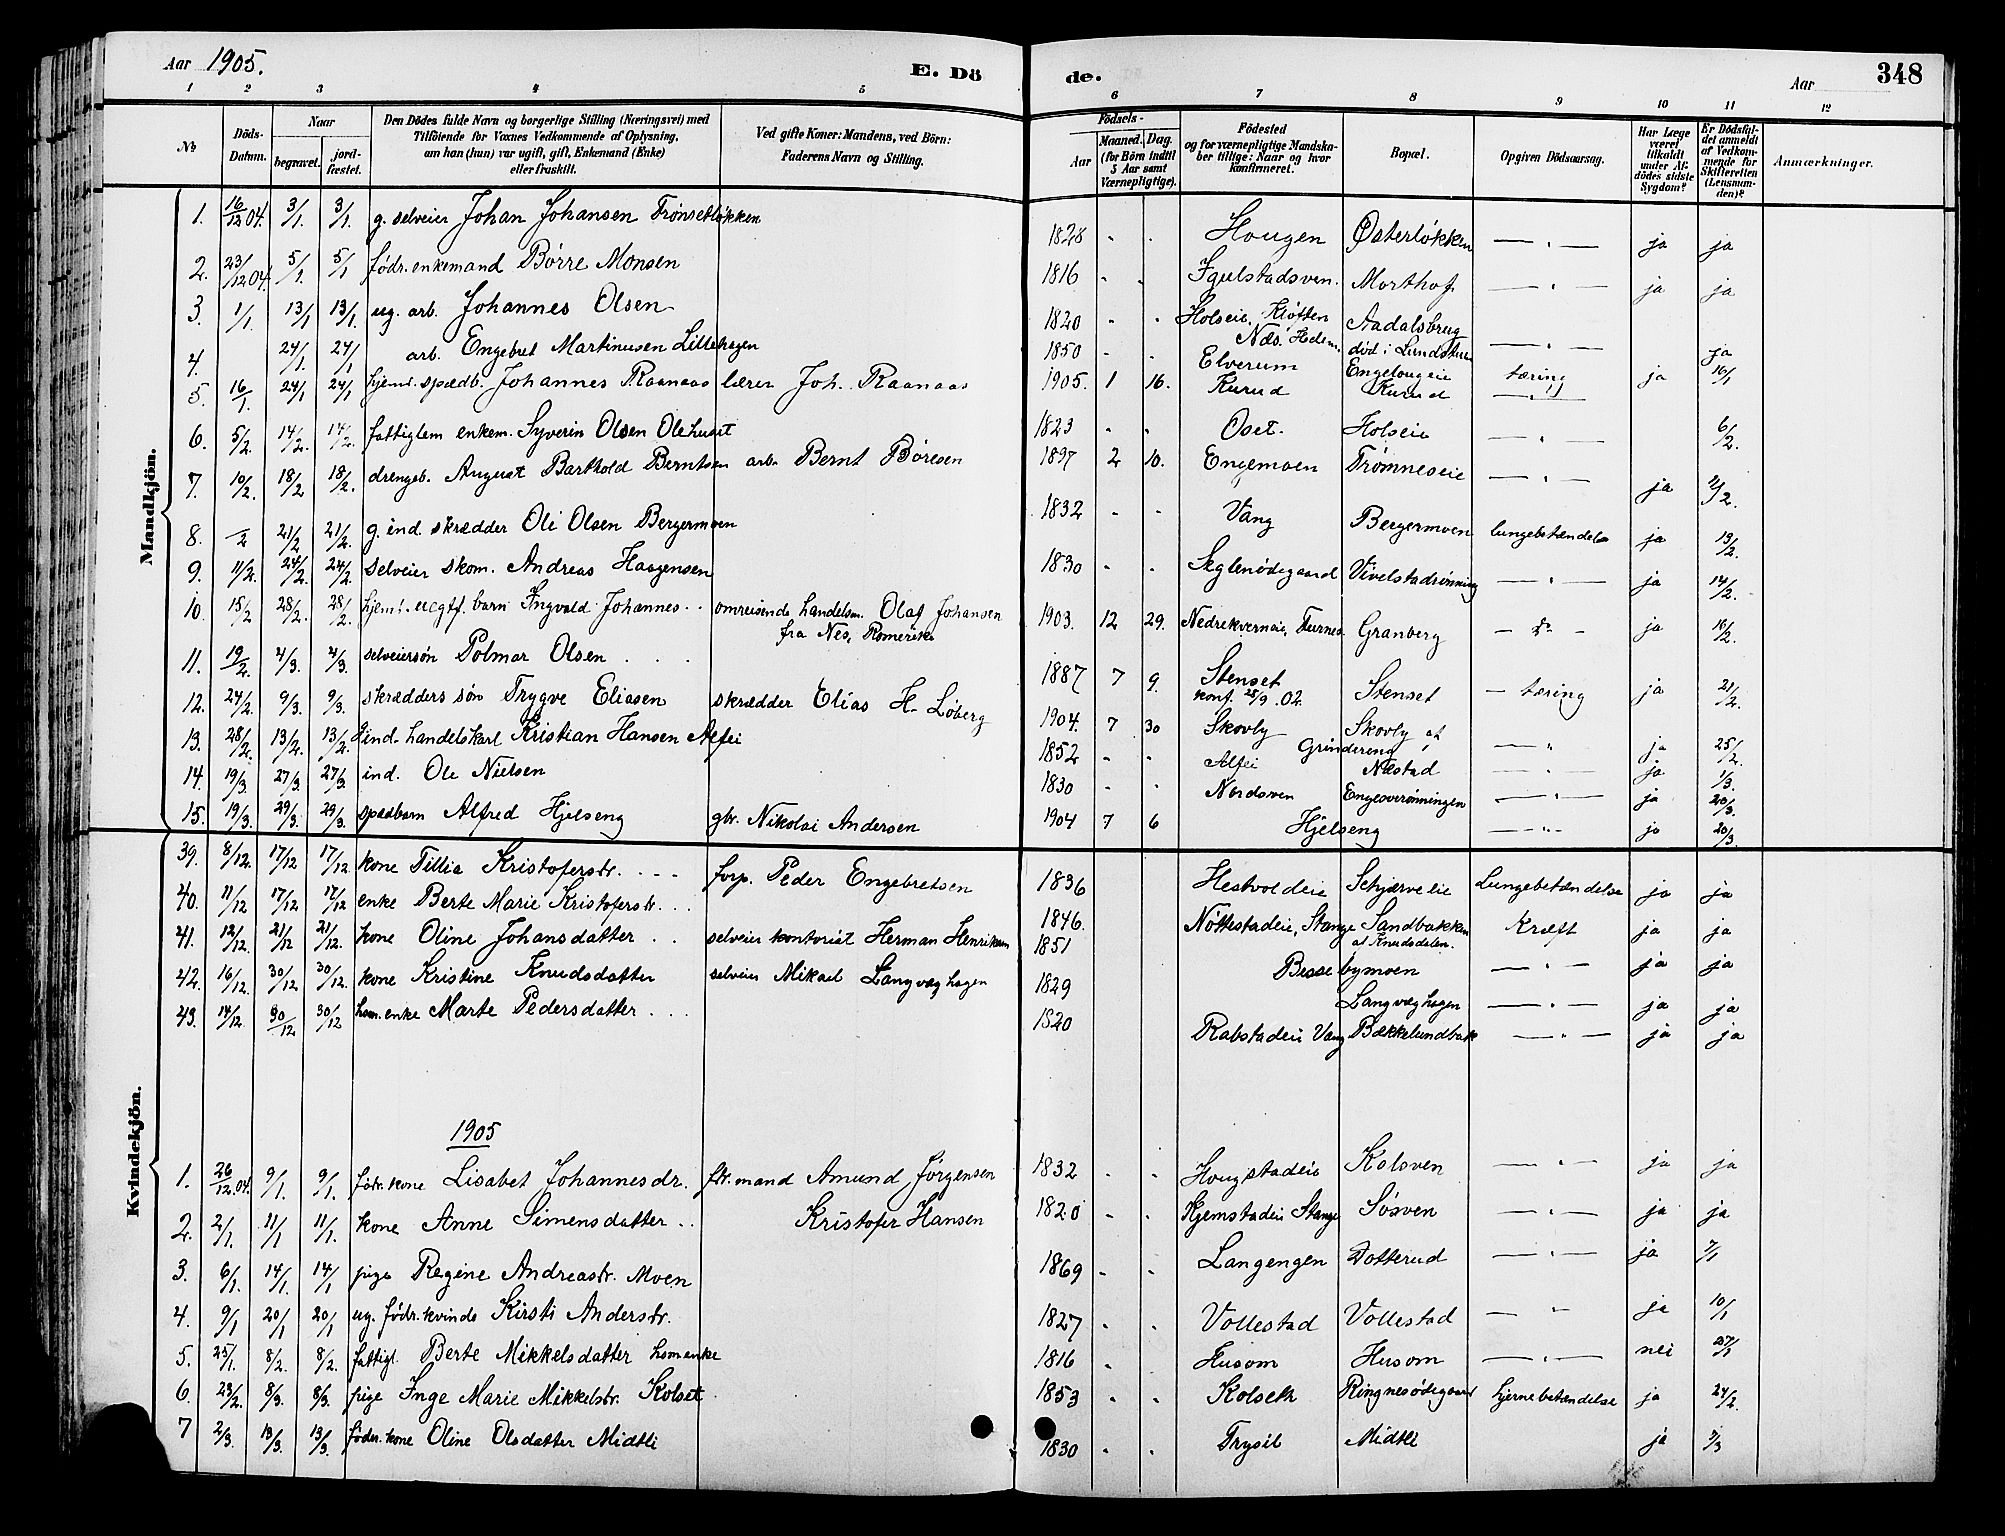 Aar 1905. E. Dö
de. Aar 348
1 2 3 4 5 6 7 8 9 10 11 12
No
Döds-Datum.
Naar
begravet.
jord-fæstet.
Den Dödes fulde Navn og borgerlige Stilling (Næringsvei) med
Tilföiende for Voxnes Vedkommende af Oplysning,
om han (hun) var ugift, gift, Enkemand (Enke)
eller fraskilt.
Ved gifte Koner: Mandens, ved Börn:
Faderens Navn og Stilling.
Födsels-
Aar
Maaned. Dag.
(for Börn indtil
5 Aar samt
Værnepligtige).
Födested
og for værnepligtige Mandska-
ber tillige: Naar og hvor
konfirmeret.
Bopæl.
Opgiven Dödsaarsag.
Har Læge
været
tilkaldt
under Af-
dödes sidste
Sygdom?
Er Dödsfal-
det anmeldt
af Vedkom-
mende for
Skifteretten
(Lensman-
den)?
Anmærkninger.
Mandkjön.
1. 16/12 04. 3/1 3/1 g. selveier Johan Johansen Trønsetløkken 1828 " " Hougen Østerløkken — " — ja ja
2. 23/12 04. 5/1 5/1 födr. enkemand Börre Monsen 1816 " " Igelstadsven. Morthof — " — ja ja
3. 1/1. 13/1 13/1. ug. arb. Johannes Olsen 1820 " " Holseie, Kløtten Aadalsbrug — " —
4. 24/1. 24/1 arb. Engebret Martinusen Lillehagen 1850 " " Næs. Hedm. Elverum død i Engelougeie tæring ja ja
5. 16/1. 24/1 24/1 hjemd. spædb. Johannes Raanaas lærer Joh. Raanaas 1905. 1 16. Kurud Kurud — " — 16/1
6. 5/2. 14/2. 14/2. fattiglem enkem. Syverin Olsen Olehuset 1823 " " Oset. Holseie — " — 6/2.
7. 10/2. 18/2 18/2. drengeb. August Barthold Berntsen arb. Bernt Böresen 1897 2 10. Engemoen Trømneseie — " — ja
8. 21/2 21/2. g. ind. skrædder Ole Olsen Bergermoen 1832 " " Vang Bergermoen lungebetændelse ja 13/2.
9. 11/2. 24/2. 24/2. selveier skom. Andreas Haagensen 1830 " " Seglenødegaard Vivelstadrønning — " — ja 14/2.
10. 15/2 28/2. 28/2. hjemd. uegtf. barn Ingvald Johannes omreisende handelsm. Olaf Johansen
fra Nes, Romerike 1903. 12 29. Nedrekverneie, Furnes Granberg — " — ja 16/2.
11. 19/2. 4/3. 4/3. selveiersøn Polmar Olsen 1887 7 9. Stenset
konf. 28/9.02. Stenset — tæring ja 21/2.
12. 24/2. 9/3. 9/3. skrædders søn Trygve Eliasen skrædder Elias H. Løberg 1904. 7 30 Skovby Skovby af
Grindereng — " ja 25/2.
13. 28/2. 13/2. 13/2. ind. handelskarl Kristian Hansen Alfei 1852 " " Alfei Næstad — " — ja 1/3.
14. 19/3 27/3. 27/3. ind. Ole Nielsen 1830 " " Nordsven Engeoverønningen — " — ja 20/3.
15. 19/3. 29/3. 29/3. spædbarn Alfred Hjelseng gbr. Nikolai Andersen 1904 7 6 Hjelseng — " — ja 20/3.
Kvindekjön.
39. 8/12. 17/12 17/12. kone Tillia Kristoferstr. forp. Peder Engebretsen 1836 Hestvoldeie Schjærveeie Lungebetændelse ja ja
40. 11/12 17/12 17/12 enke Berte Marie Kristoferstr. 1846. Nøttestadeie, Stange Sandbakken
af Knudsdalen. Kræft ja ja
41. 12/12. 21/12 21/12. kone Oline Johansdatter selveier kontorist Herman Henriksen 1851 Bessebymoen — " — ja ja
42. 16/12. 30/12 30/12. kone Kristine Knudsdatter selveier Mikael Langvæghagen 1829 Langvæghagen — " — ja ja
43. 14/12 30/12 30/12 husm. enke Marte Pedersdatter 1820 Rabstadeie Vang Bækkelundbak — " — ja ja
1905
1. 26/12.04. 9/1. 9/1. födr. kone Lisabet Johannesdr. fdr. mand Amund Jörgensen 1832 " " Hougstadeie Kolsven — " — ja ja
2. 2/1. 11/1 11/1. kone Anne Simensdatter Kristofer Hansen 1820 " " Kjemstadeie Stange Søsven — " — ja ja
3. 6/1. 14/1. 14/1 pige Regine Andreastr. Moen 1869 " " Langengen Dotterud — " — ja 7/1
4. 9/1 20/1 20/1 ug. födr. kvinde Kirsti Anderstr. 1827 " " Vollestad Vollestad — " — ja 10/1
5. 25/1. 8/2. 8/2. fattigl. Berte Mikkelsdatter husm enke 1816 " Husom Husom — " — nei 27/1
6. 23/2. 8/3. 8/3. pige Inge Marie Mikkelstr. Kolset 1853 " " Kolseth Ringnesødegaard hjernebetændelse ja 24/2.
7 2/3. 13/3. 13/3. föder. kone Oline Olsdatter Midtli 1830 " " Trysil Midtli ja 3/3